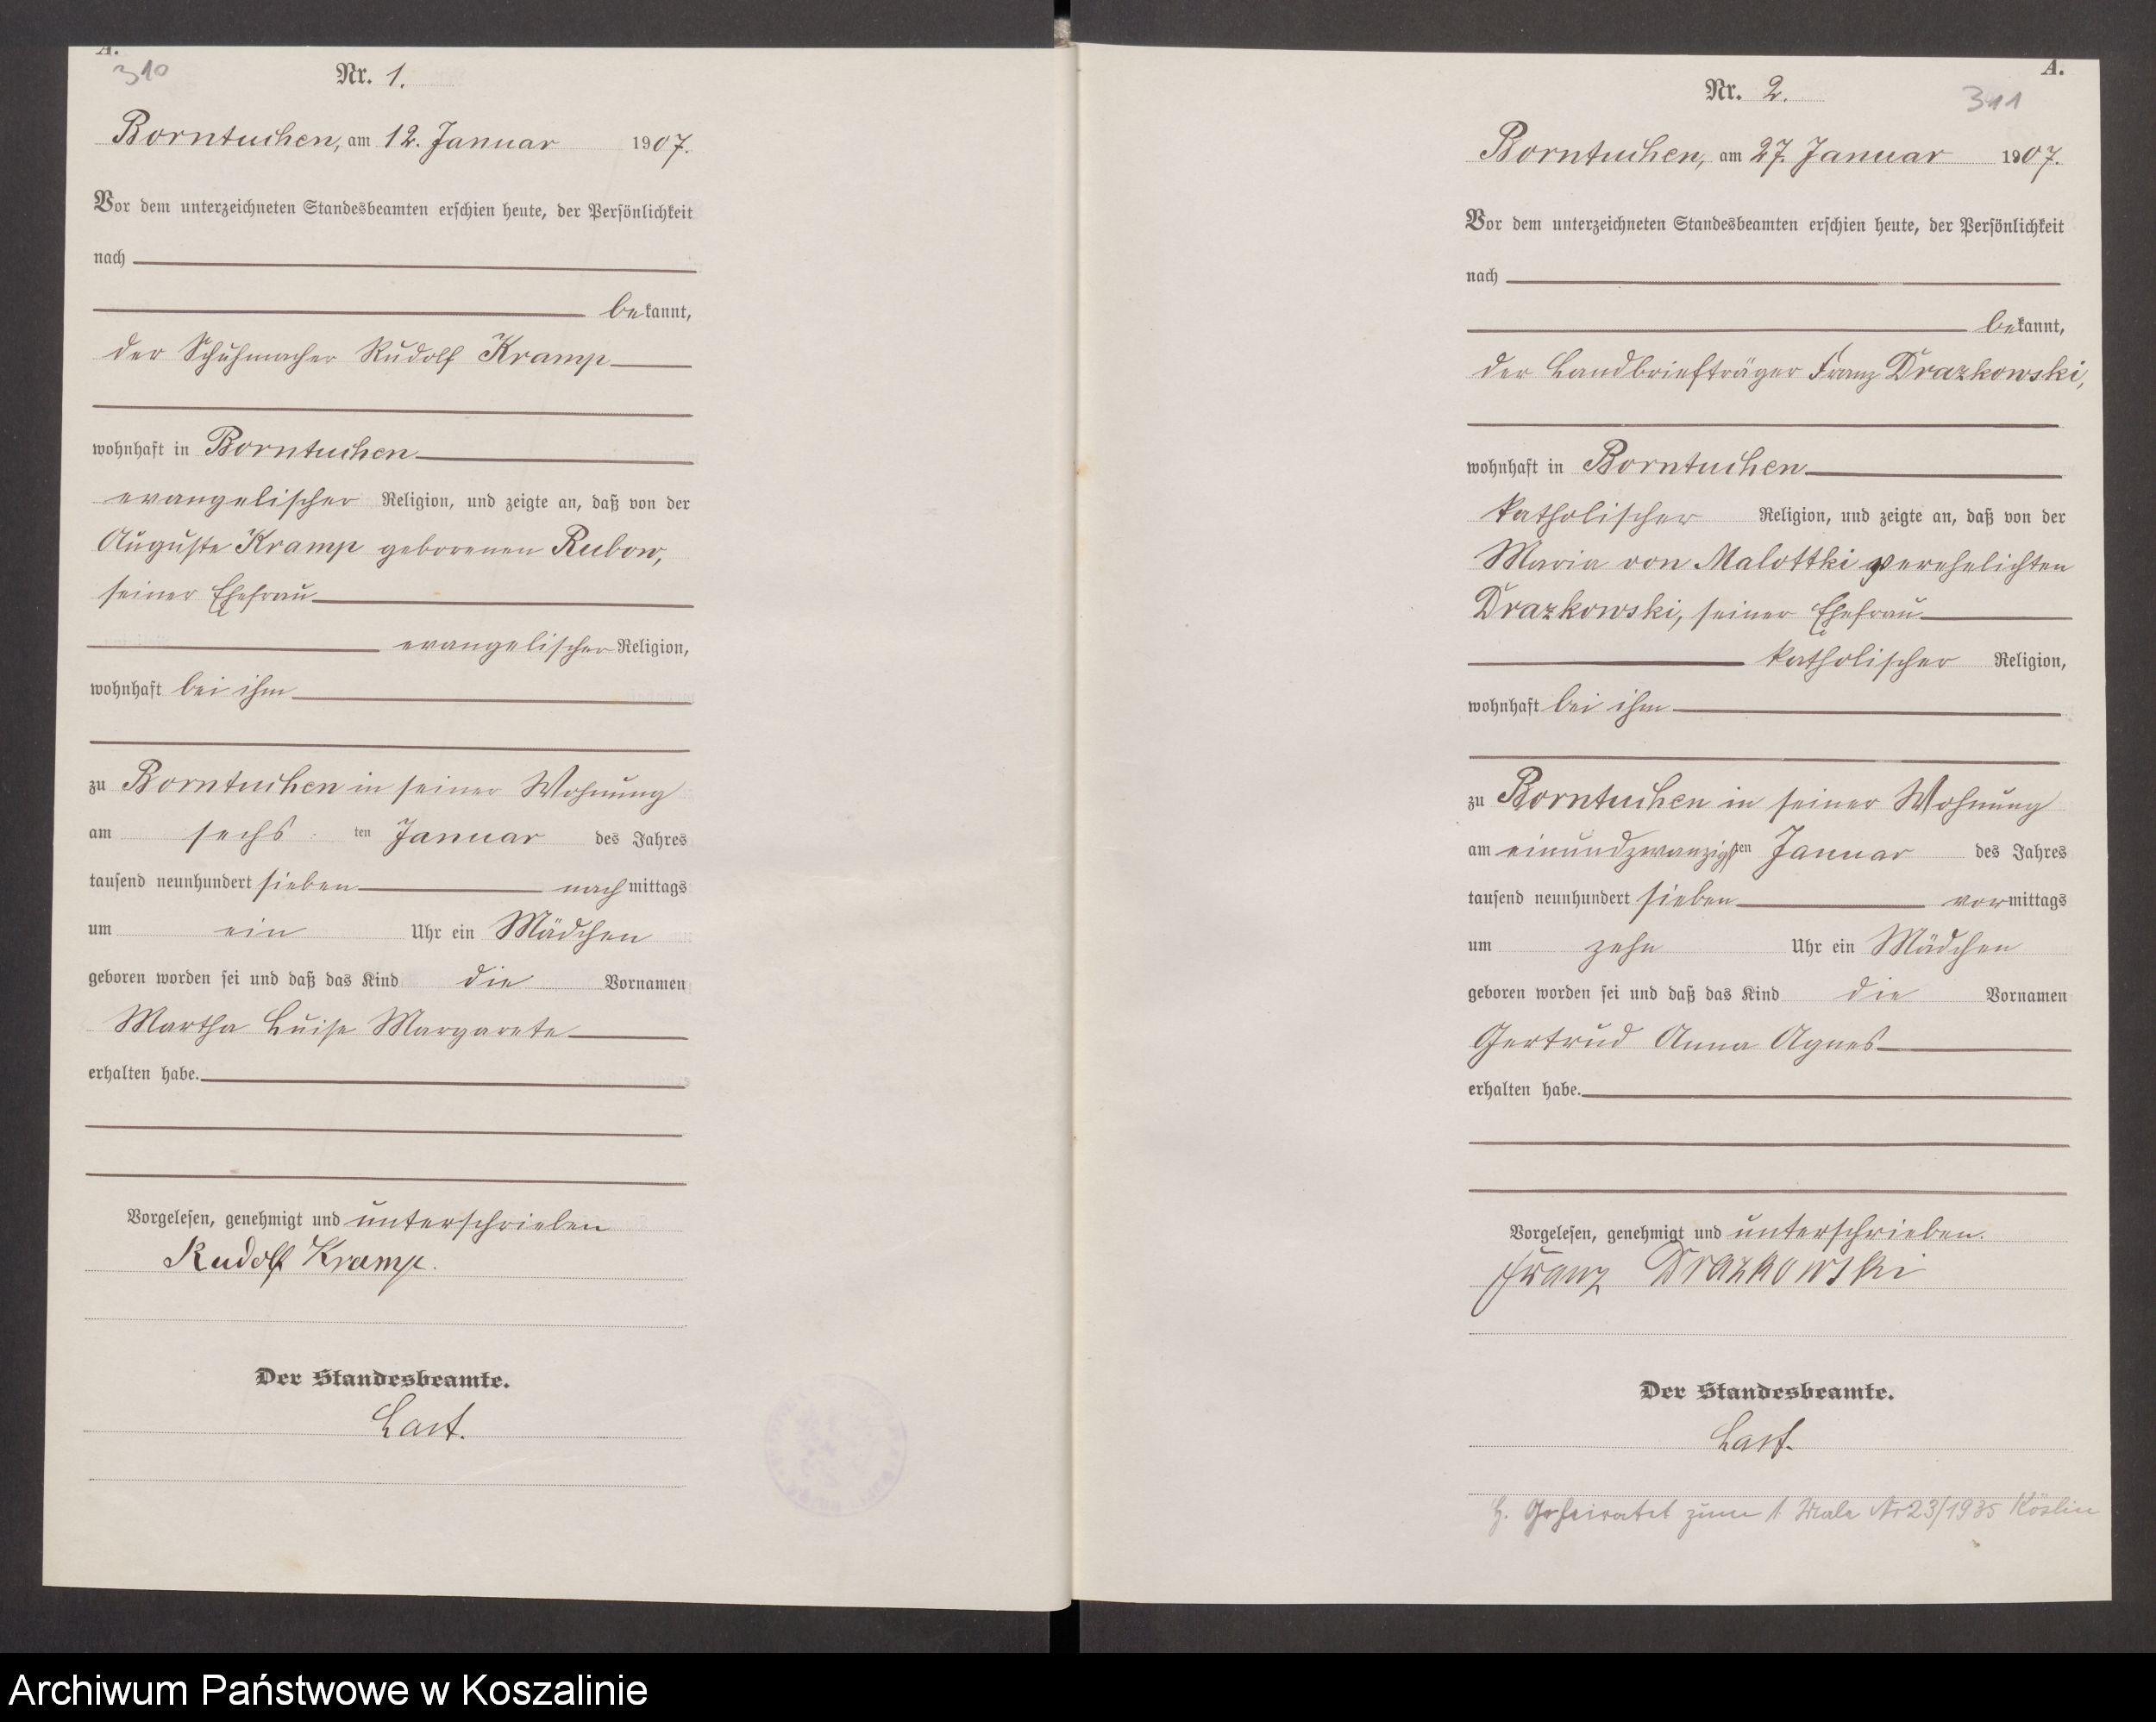 A.
310
Nr. 1.
Borntuchen, am 12. Januar 1907.
Vor dem unterzeichneten Standesbeamten erschien heute, der Persönlichkeit
nach
bekannt,
der Schuhmacher Rudolf Kramp
wohnhaft in Borntuchen
evangelischer Religion, und zeigte an, daß von der
Auguste Kramp geborenen Rubow,
seiner Ehefrau
evangelischer Religion,
wohnhaft bei ihm
zu Borntuchen in seiner Wohnung
am sechsten Januar des Jahres
tausend neunhundert sieben nachmittags
um ein Uhr ein Mädchen
geboren worden sei und daß das Kind die Vornamen
Martha Luise Margarete
erhalten habe.
Vorgelesen, genehmigt und unterschrieben
Rudolf Kramp.
Der Standesbeamte.
Last.
A.
311
Nr. 2.
Borntuchen, am 27. Januar 1907.
Vor dem unterzeichneten Standesbeamten erschien heute, der Persönlichkeit
nach
bekannt,
der Landbriefträger Franz Drazkowski,
wohnhaft in Borntuchen
katholischer Religion, und zeigte an, daß von der
Maria von Malottki verehelichten
Drazkowski, seiner Ehefrau
katholischer Religion,
wohnhaft bei ihm
zu Borntuchen in seiner Wohnung
am einundzwanzigsten Januar des Jahres
tausend neunhundert sieben vormittags
um zehn Uhr ein Mädchen
geboren worden sei und daß das Kind die Vornamen
Gertrud Anna Agnes
erhalten habe.
Vorgelesen, genehmigt und unterschrieben.
Franz Drazkowski
Der Standesbeamte.
Last.
Geheiratet zum 1 Male Nr 23/1935 Köslin
Archiwum Państwowe w Koszalinie